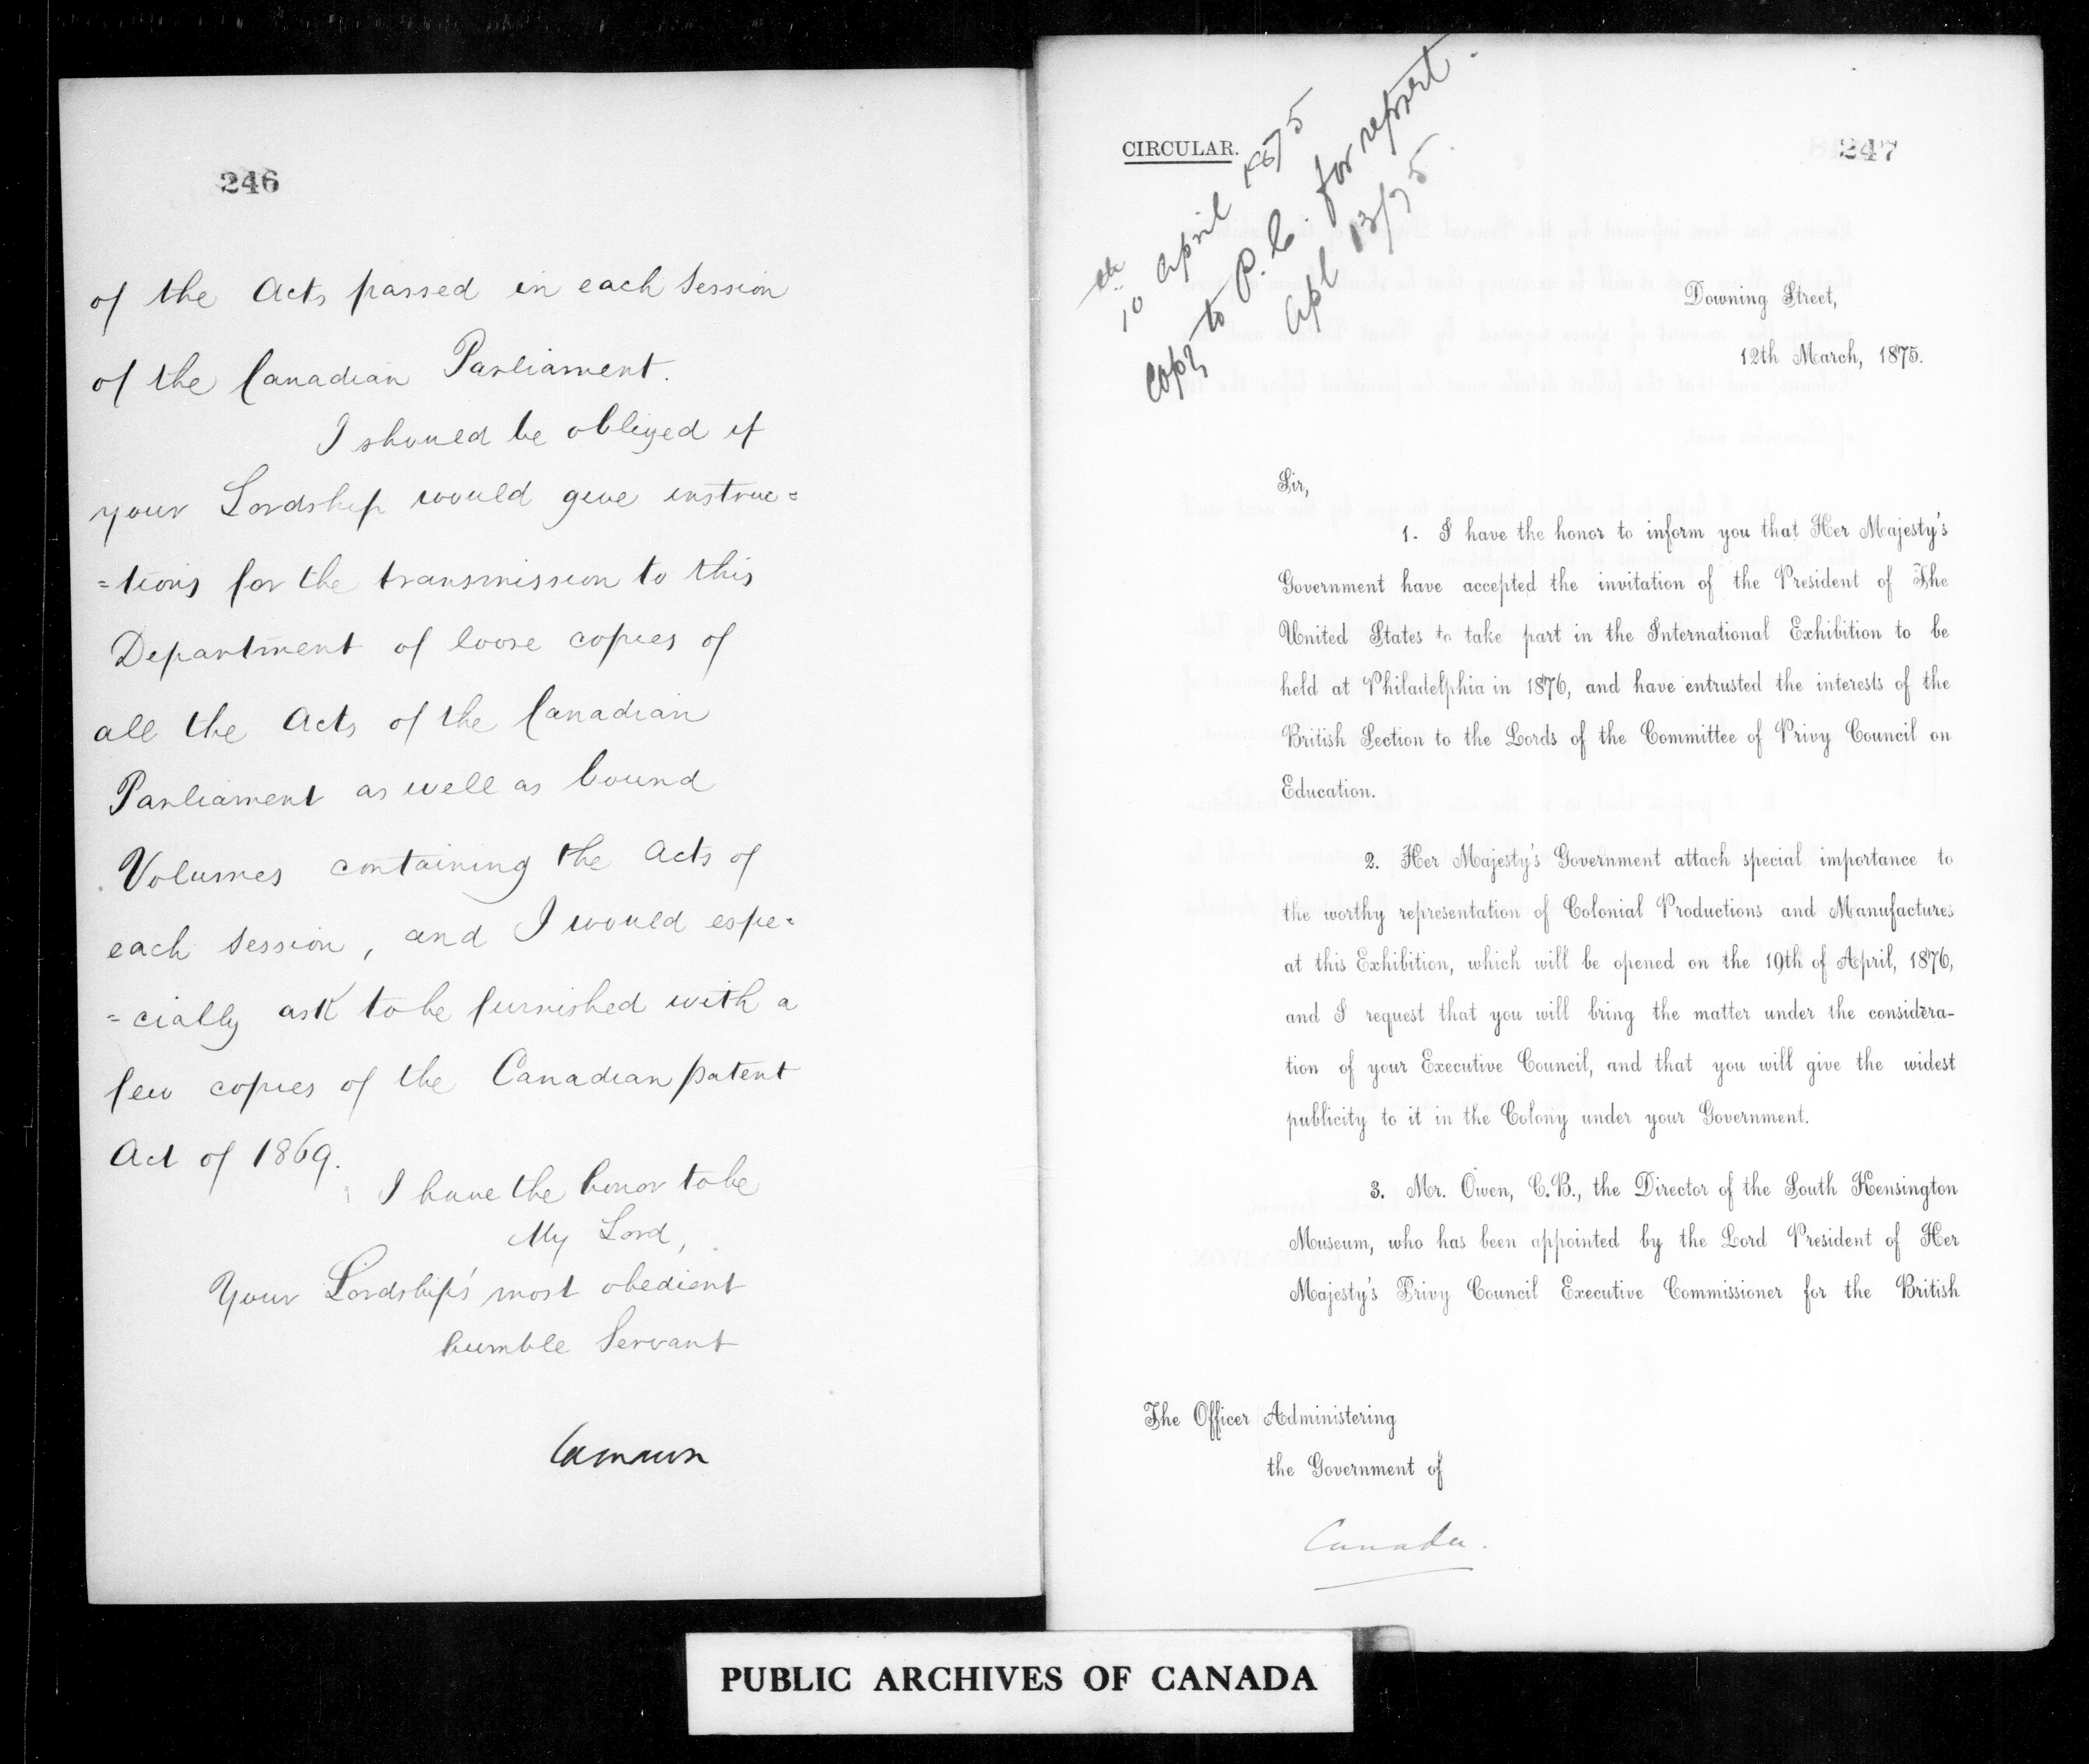 246
of the Acts passed in each Session
of the Canadian Parliament.
I should be obliged if
your Lordship would give instruc=
=tions for the transmission to this
Department of loose copies of
all the Acts of the Canadian
Parliament as well as bound
Volumes containing the Acts of
each Session, and I would espe=
=cially ask to be furnished with a
few copies of the Canadian patent
Act of 1869.
I have the honor to be
My Lord,
Your Lordship's most obedient
humble Servant
Carnarvon
CIRCULAR.
247
10 April 1875
Copy to P.C. for report.
Apl 13/75
Downing Street,
12th March, 1875.
Sir,
1. I have the honor to inform you that Her Majesty's
Government have accepted the invitation of the President of The
United States to take part in the International Exhibition to be
held at Philadelphia in 1876, and have entrusted the interests of the
British Section to the Lords of the Committee of Privy Council on
Education.
2. Her Majesty's Government attach special importance to
the worthy representation of Colonial Productions and Manufactures
at this Exhibition, which will be opened on the 19th of April, 1876,
and I request that you will bring the matter under the considera-
tion of your Executive Council, and that you will give the widest
publicity to it in the Colony under your Government.
3. Mr. Owen, C.B., the Director of the South Kensington
Museum, who has been appointed by the Lord President of Her
Majesty's Privy Council Executive Commissioner for the British
The Officer Administering
the Government of
Canada.
PUBLIC ARCHIVES OF CANADA